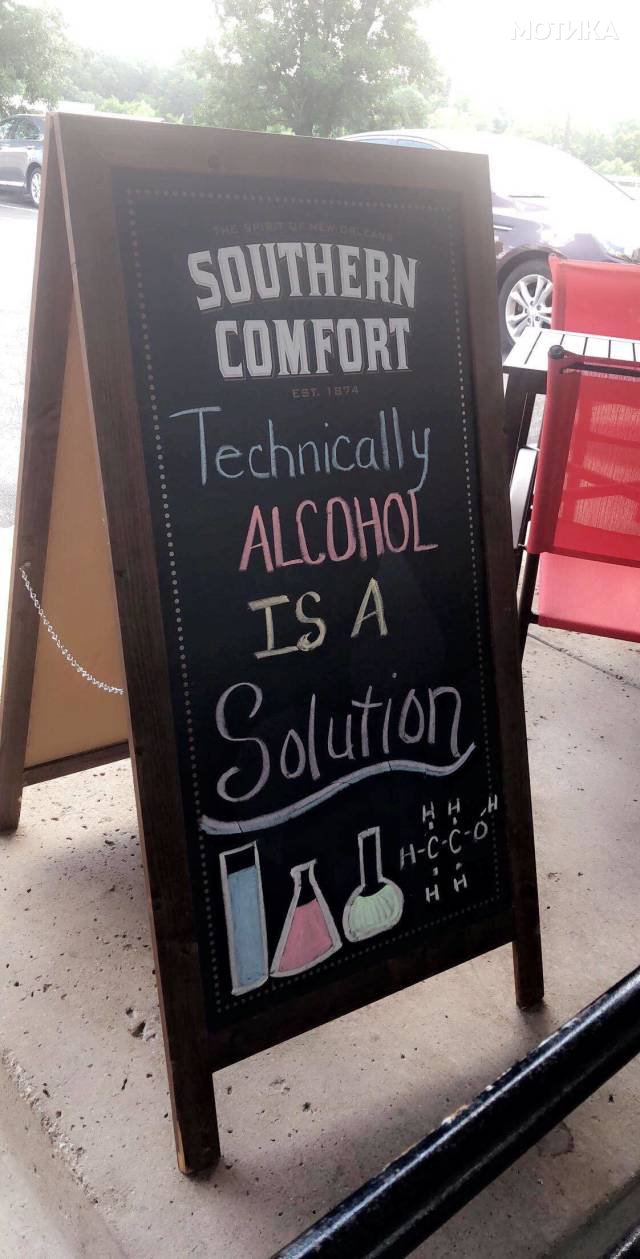 МОТИКА
THE SPIRIT OF NEW ORLEANS
SOUTHERN
COMFORT
EST. 1874
Technically
ALCOHOL
IS A
Solution
H H H
H-C-C-O
H H